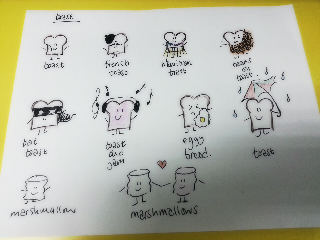 toast
french
toast
toast
beans
on
toast
toast
toast
and
jam
eggy
bread
toast
marshmallows
marshmallows